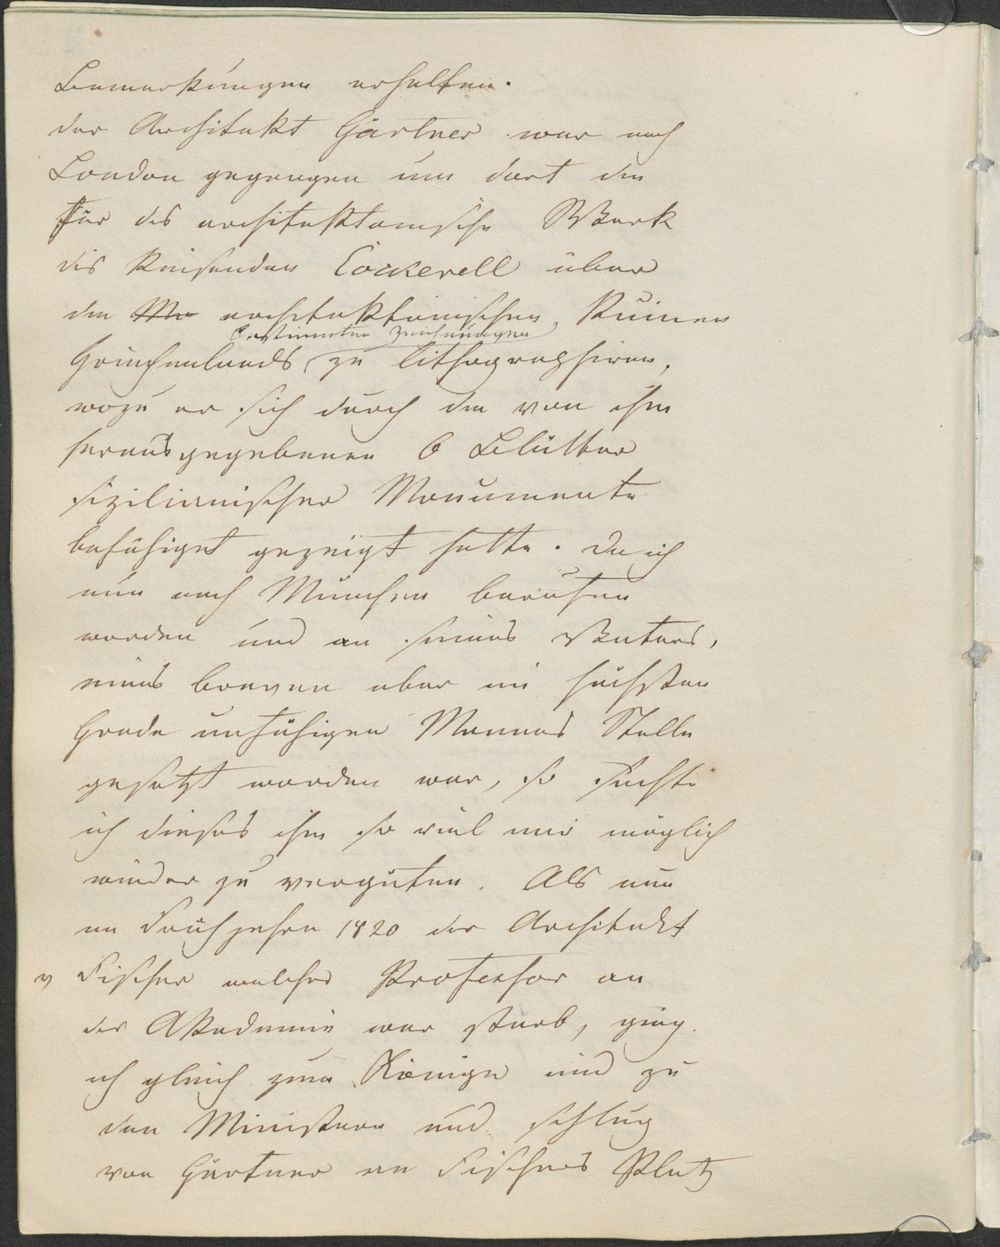 Bemerkungen erhalten.
der Architekt Gärtner war nach
London gegangen um dort die
für das architektonische Werk
des Reisenden Cockerell über
die architektonischen Ruinen
bestimmten Zeichnungen
Griechenlands zu lithographiren,
wozu er sich durch die von ihm
herausgegebenen 6 Blätter
sizilianischer Monumente
befähigt gezeigt hatte. Da ich
nun nach München berufen
worden und an seines Vaters,
eines braven aber im höchsten
Grade unfähigen Mannes Stelle
gesetzt worden war, so suchte
ich dieses ihm so viel mir möglich
wieder zu vergüten. Als nun
im Frühjahre 1820 der Architekt
Fischer welcher Professor an
der Akademie war starb, ging
ich gleich zum Könige und zu
den Ministern und schlug
von Gärtner an Fischers Platz